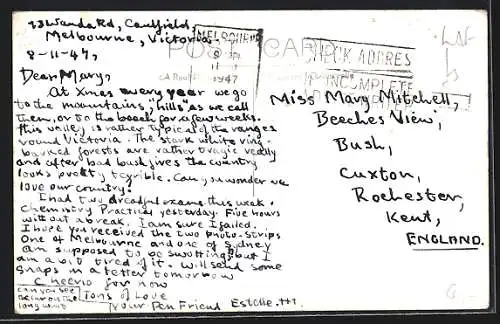 73 Wanda Rd, Caulfield,
Melbourne, Victoria.
8-11-47,
Dear Mary,
At Xmas every year we go
to the mountains, "hills" as we call
them, or to the beach for a few weeks.
This valley is rather typical of the ranges
round Victoria. The stark white ring-
barked forests are rather tragic really
and after bad bushfires the country
looks pretty terrible. Can you wonder we
love our country?
I had two dreadful exams this week.
Chemistry Practical yesterday. Five hours
without a break. I am sure I failed.
I hope you received the two photo-strips
One of Melbourne and one of Sydney
am supposed to be swotting, but I
am a bit tired of it. Will send some
snaps in a letter tomorrow
Cheerio for now
Tons of Love
Your Pen Friend Estelle. ttt.
can you see
the
long
POST CARD
MELBOURNE
1947
ADDRES
INCOMPLETE
Miss Mary Mitchell,
Beeches View,
Bush,
Cuxton,
Rochester,
Kent,
ENGLAND.